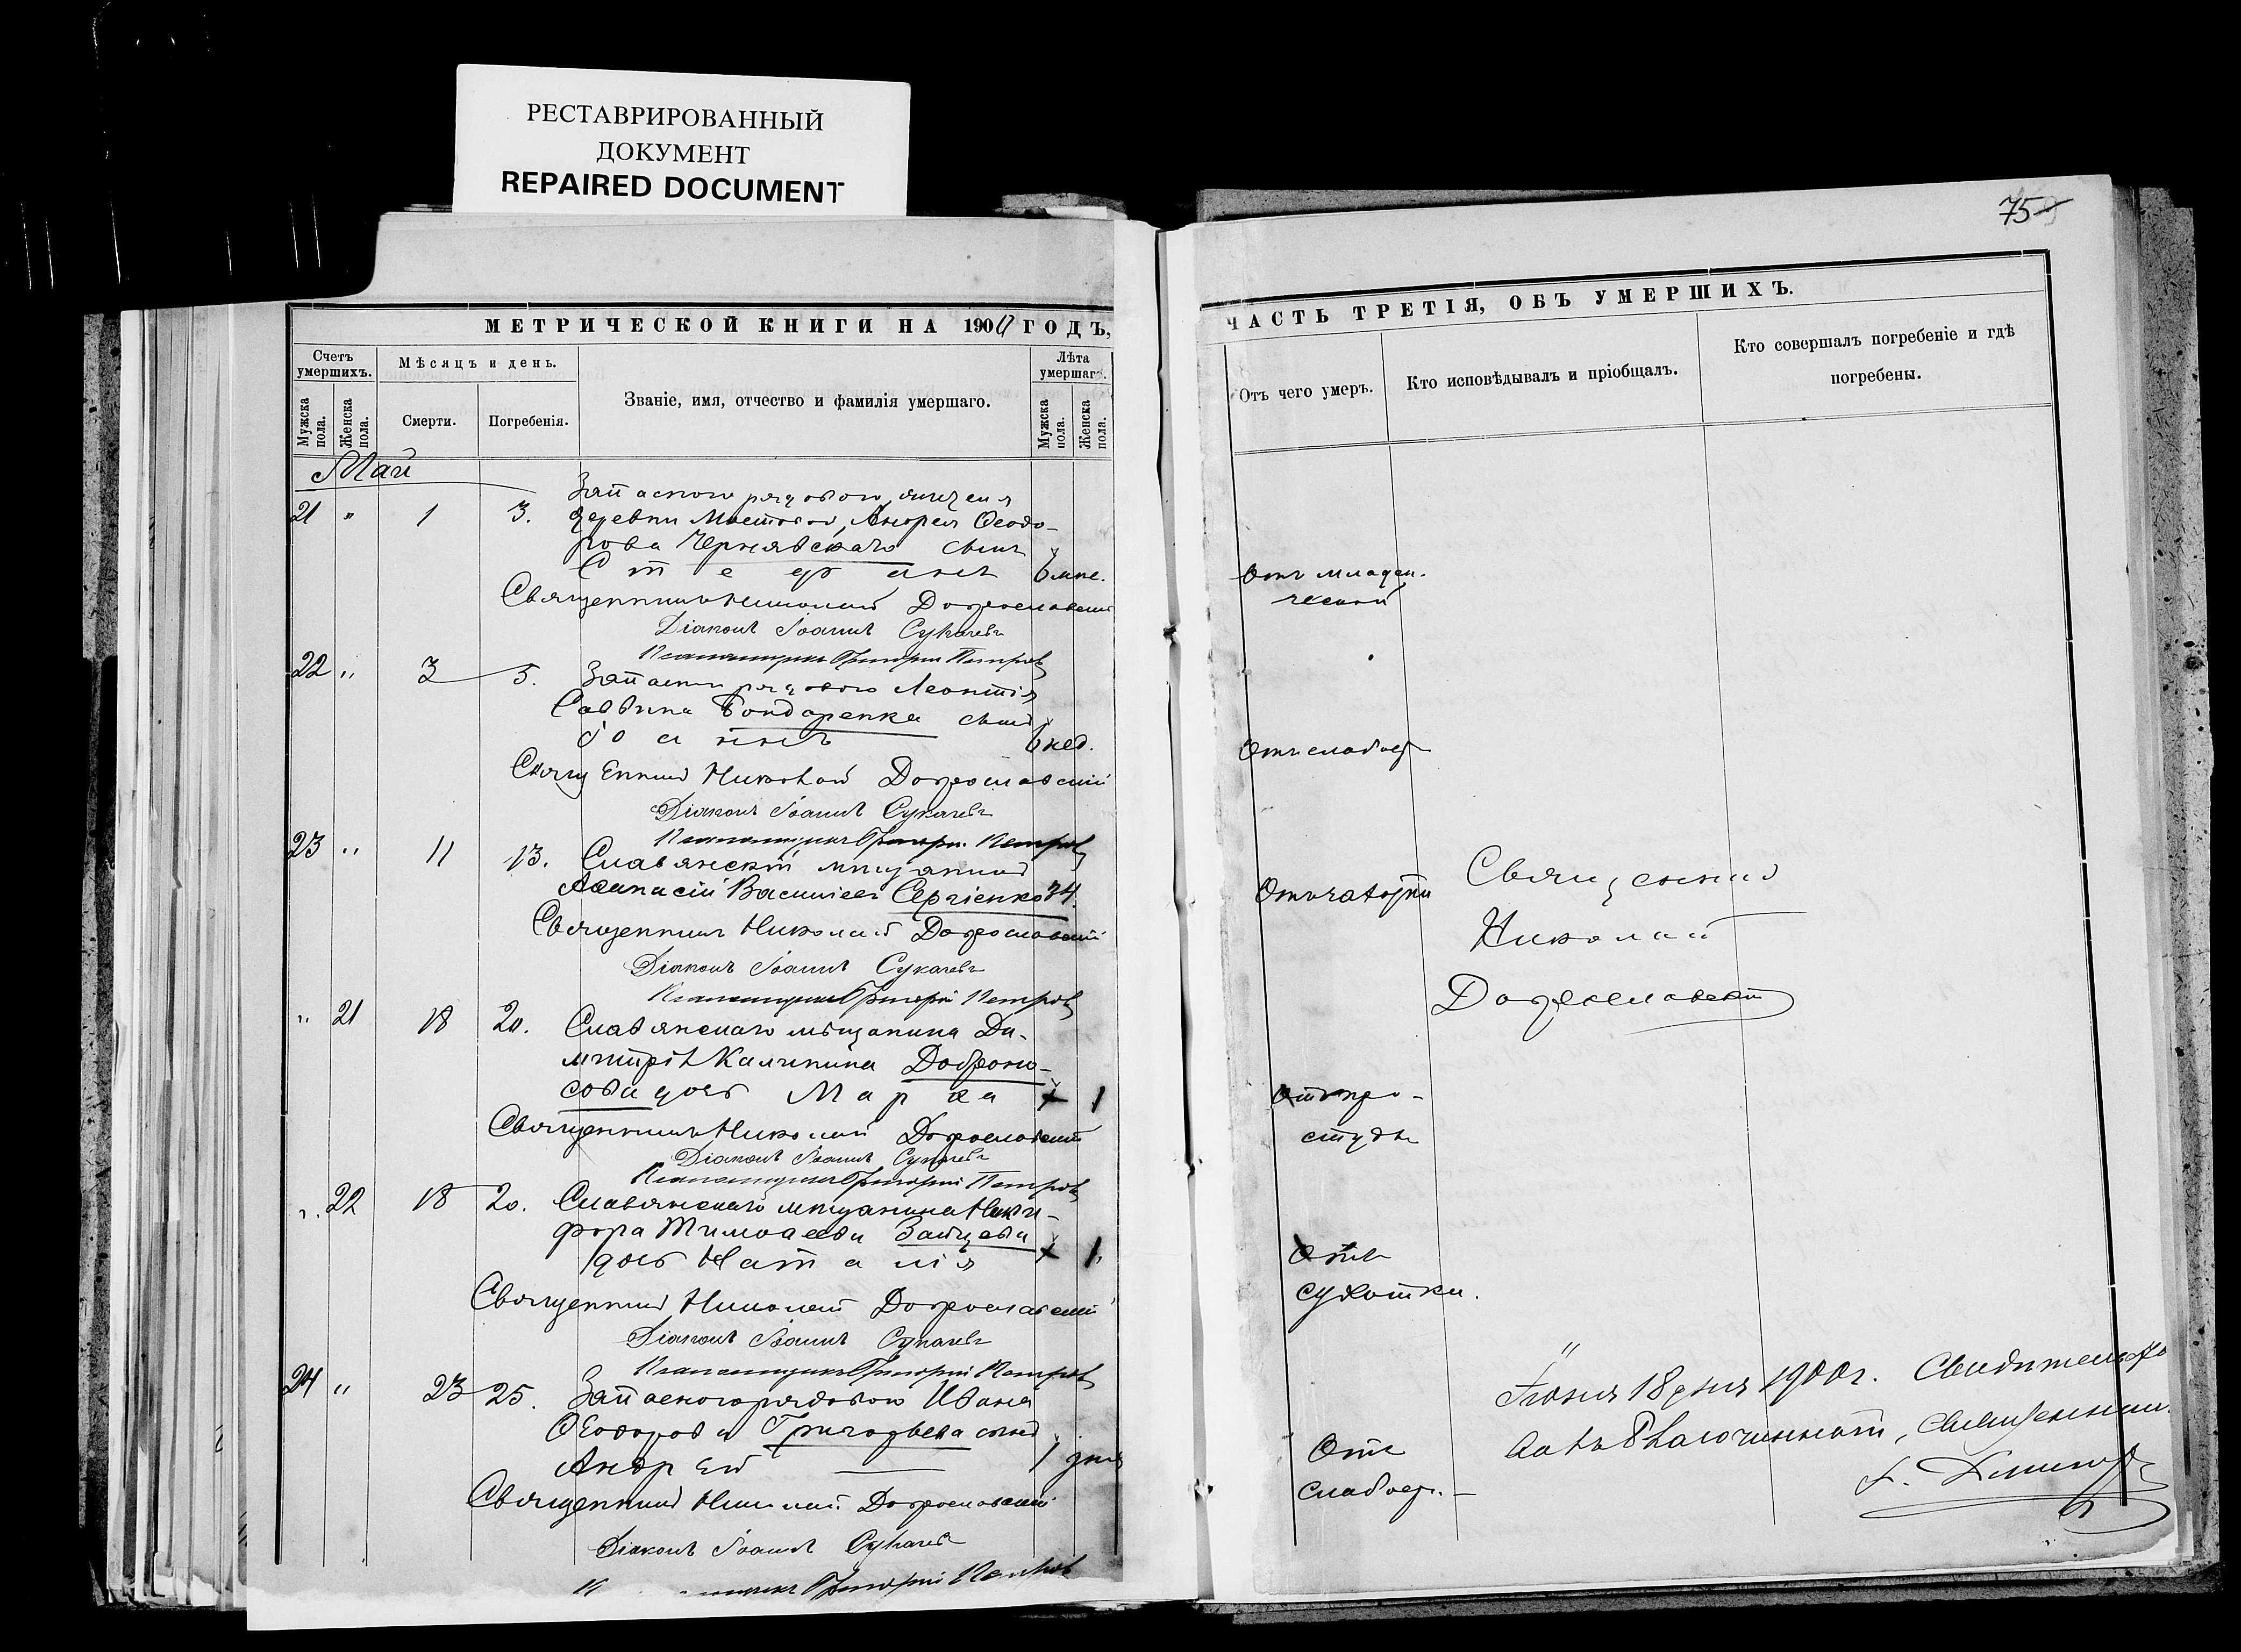 РЕСТАВРИРОВАННЫЙ
ДОКУМЕНТ
REPAIRED DOCUMENT
МЕТРИЧЕСКОЙ КНИГИ НА 1900 ГОДЪ,
Счетъ умершихъ.
Мѣсяцъ и день.
Званіе, имя, отчество и фамилія умершаго.
Лѣта умершаго.
Мужска пола.
Женска пола.
Смерти.
Погребенія.
Мужска пола.
Женска пола.
Май
21 " 1 3. Запасного рядового, жителя
деревни Андрея Ѳеодо-
рова Чернявскаго сынъ
Стефанъ 6 мѣс.
Священникъ Николай Доброславскій
Діаконъ Іоаннъ Сукачевъ
Псаломщикъ Григорій Петровъ
22 " 3 5. Запасного рядового Леонтія
Саввина Бондаренка сынъ
Іоаннъ 6 нед.
Священникъ Николай Доброславскій
Діаконъ Іоаннъ Сукачевъ
Псаломщикъ Григорій Петровъ
23 " 11 13. Славянскій мѣщанинъ
Аѳанасій Васильевъ Сергіенко 34.
Священникъ Николай Доброславскій
Діаконъ Іоаннъ Сукачевъ
Псаломщикъ Григорій Петровъ
" 21 18 20. Славянскаго мѣщанина Ди-
митрія Калинина Доброно-
сова дочь Марѳа 1
Священникъ Николай Доброславскій
Діаконъ Іоаннъ Сукачевъ
Псаломщикъ Григорій Петровъ
" 22 18 20. Славянскаго мѣщанина Ники-
фора Тимоѳеева Зайцева
дочь Наталія 1.
Священникъ Николай Доброславскій
Діаконъ Іоаннъ Сукачевъ
Псаломщикъ Григорій Петровъ
24 " 23 25. Запасного рядового Ивана
Ѳеодорова Григорьева сынъ
Андрей 1 день
Священникъ Николай Доброславскій
Діаконъ Іоаннъ Сукачевъ
Григорій Петровъ
75
ЧАСТЬ ТРЕТІЯ, ОБЪ УМЕРШИХЪ.
Отъ чего умеръ.
Кто исповѣдывалъ и пріобщалъ.
Кто совершалъ погребеніе и гдѣ погребены.
Отъ младен-
ческой
Отъ слабост.
Отъ чахотки
Священникъ
Николай
Доброславскій
Отъ про-
студы
Отъ
сухотки.
Отъ
слабост.
Іюня 18 дня 1900 г. Свидѣтельство
Благочинный, Священникъ